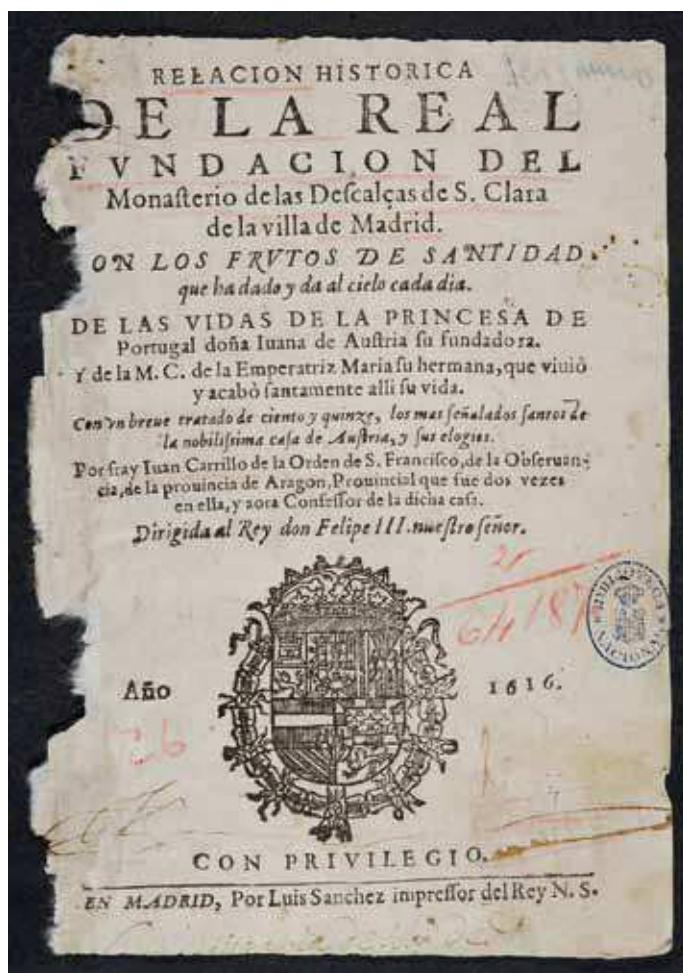 RELACION HISTORICA
DE LA REAL
FVNDACION DEL
Monaſterio de las Deſcalças de S. Clara
de la villa de Madrid.
ON LOS FRVTOS DE SANTIDAD.
que ha dado y da al cielo cada dia.
DE LAS VIDAS DE LA PRINCESA DE
Portugal doña Iuana de Auſtria ſu fundadora.
Y de la M. C. de la Emperatriz Maria ſu hermana, que viuiò
y acabò ſantamente alli ſu vida.
Con vn breue tratado de ciento y quinze, los mas ſeñalados ſantos de
la nobiliſsima caſa de Auſtria, y ſus elogios.
Por fray Iuan Carrillo de la Orden de S. Franciſco, de la Obſeruan-
cia, de la prouincia de Aragon, Prouincial que fue dos vezes
en ella, y aora Confeſſor de la dicha caſa.
Dirigida al Rey don Felipe III. nueſtro ſeñor.
64187
BIBLIOTECA NACIONAL
Año 1616.
CON PRIVILEGIO.
EN MADRID, Por Luis Sanchez impreſſor del Rey N. S.